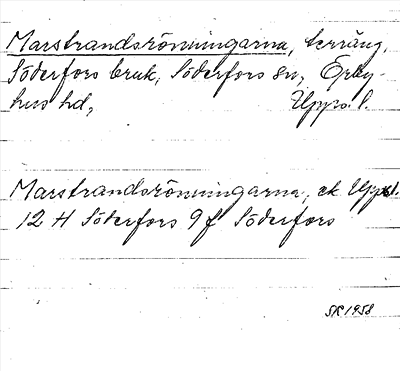 Marstrandsrönningarna, terräng,
Söderfors bruk, Söderfors sn, Örby-
hus hd, Upps. l.
Marstrandsrönningarna, ek Upps.
12 H Söderfors 9 f Söderfors
SK 1958